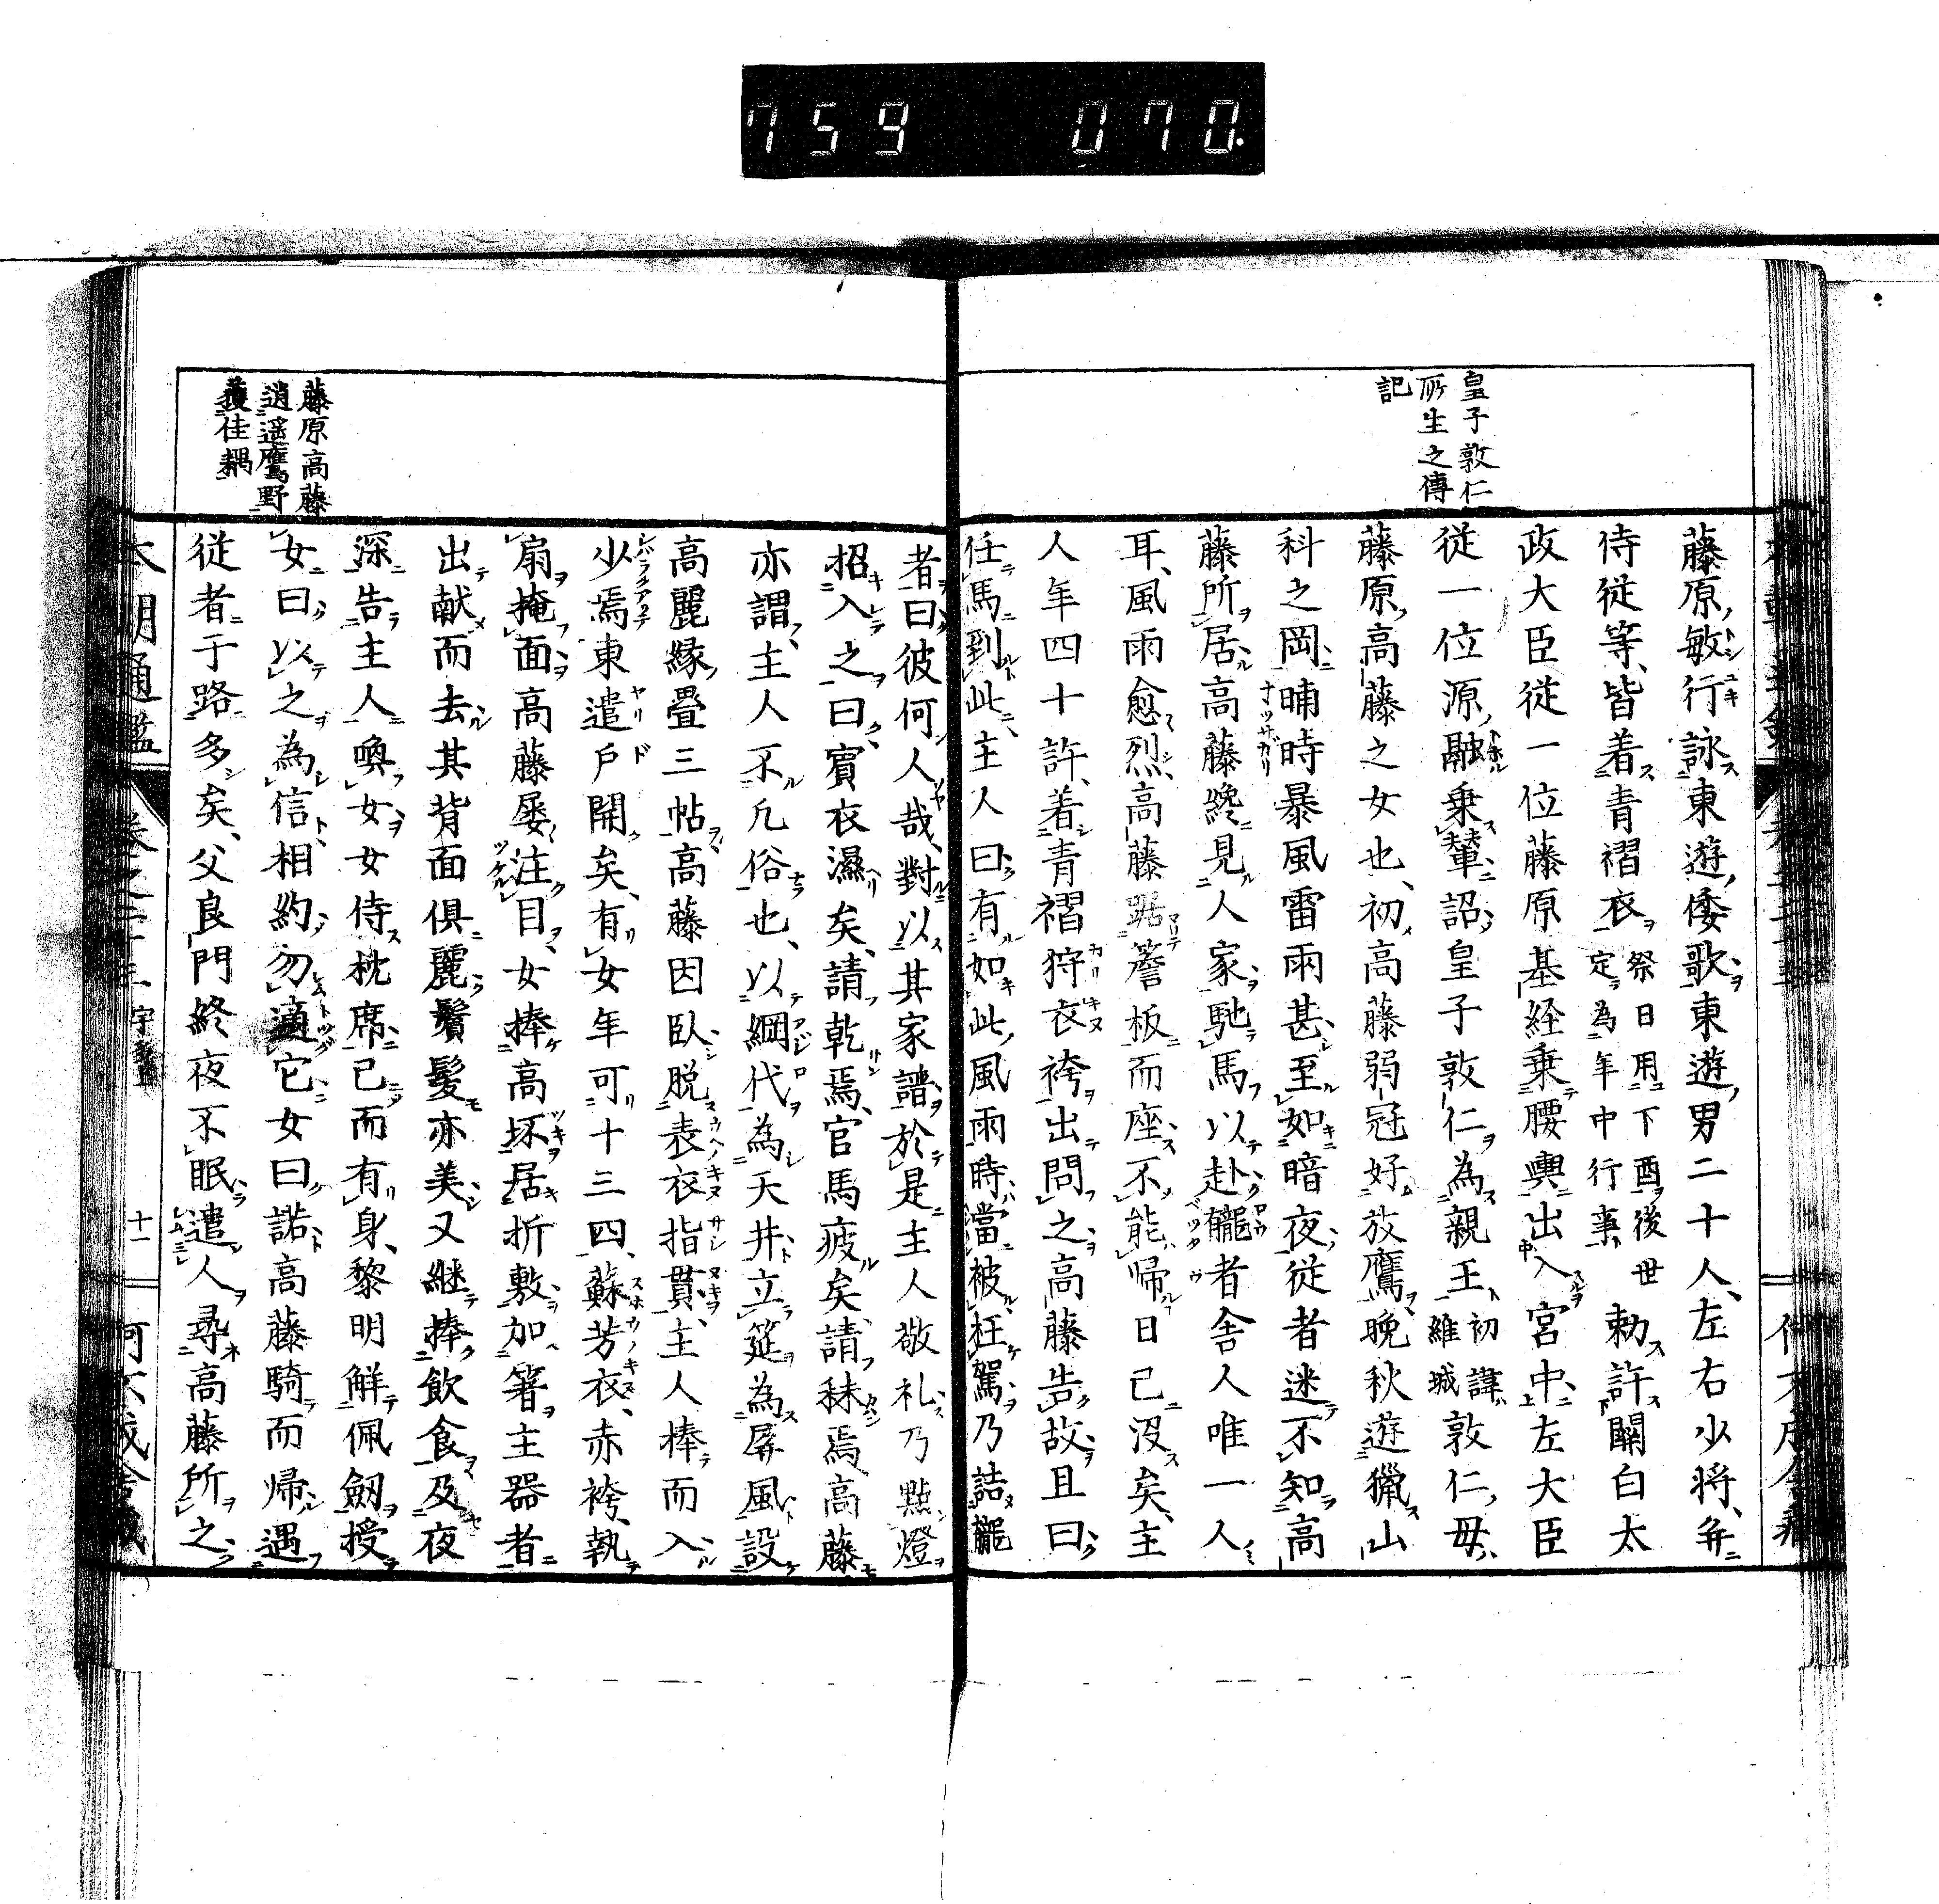 759 070.
皇子敦仁
所生之傳
記
藤原敏行詠東遊倭歌東遊男二十人左右少将并
侍従等皆着青褶衣祭日用下酉後世定為年中行事勅許關白太
政大臣従一位藤原基経乗腰輿出入宮中左大臣
従一位源融乗輦詔皇子敦仁為親王初諱維城敦仁母
藤原高藤之女也初高藤弱冠好放鷹晩秋遊獵山
科之岡晡時暴風雷雨甚至如暗夜従者迷不知高
藤所居高藤纔見人家馳馬以赴龓者舎人唯一人
耳風雨愈烈高藤踞簷板而座不能帰日已没矣主
人年四十許着青褶狩衣袴出問之高藤告故且曰
任馬到此主人曰有如此風雨時當被枉駕乃詰龓
藤原高藤
逍遥鷹野
獲佳耦
者曰彼何人哉對以其家譜於是主人敬礼乃點燈
招入之曰賓衣濕矣請乾焉官馬疲矣請秣焉高藤
亦謂主人不凡俗也以網代為天井立筵為屏風設
高麗縁畳三帖高藤因臥脱表衣指貫主人棒而入
少焉東遣戸開矣有女年可十三四蘇芳衣赤袴執
扇掩面高藤屡注目女捧高坏居折敷加箸主器者
出献而去其背面倶麗鬢髪亦美又継捧飲食及夜
深告主人喚女女侍枕席已而有身黎明觧佩劔授
女曰以之為信相約勿適它女曰諾高藤騎而帰遇
従者于路多矣父良門終夜不眠遣人尋高藤所之
本朝通鑑 卷之二十三 宇多 十一